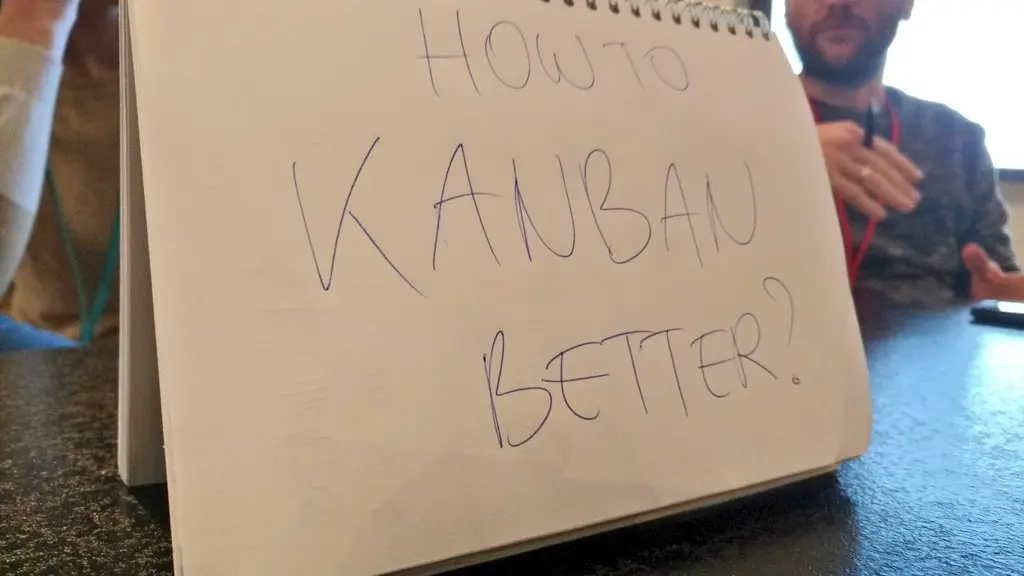 HOW TO
KANBAN
BETTER?